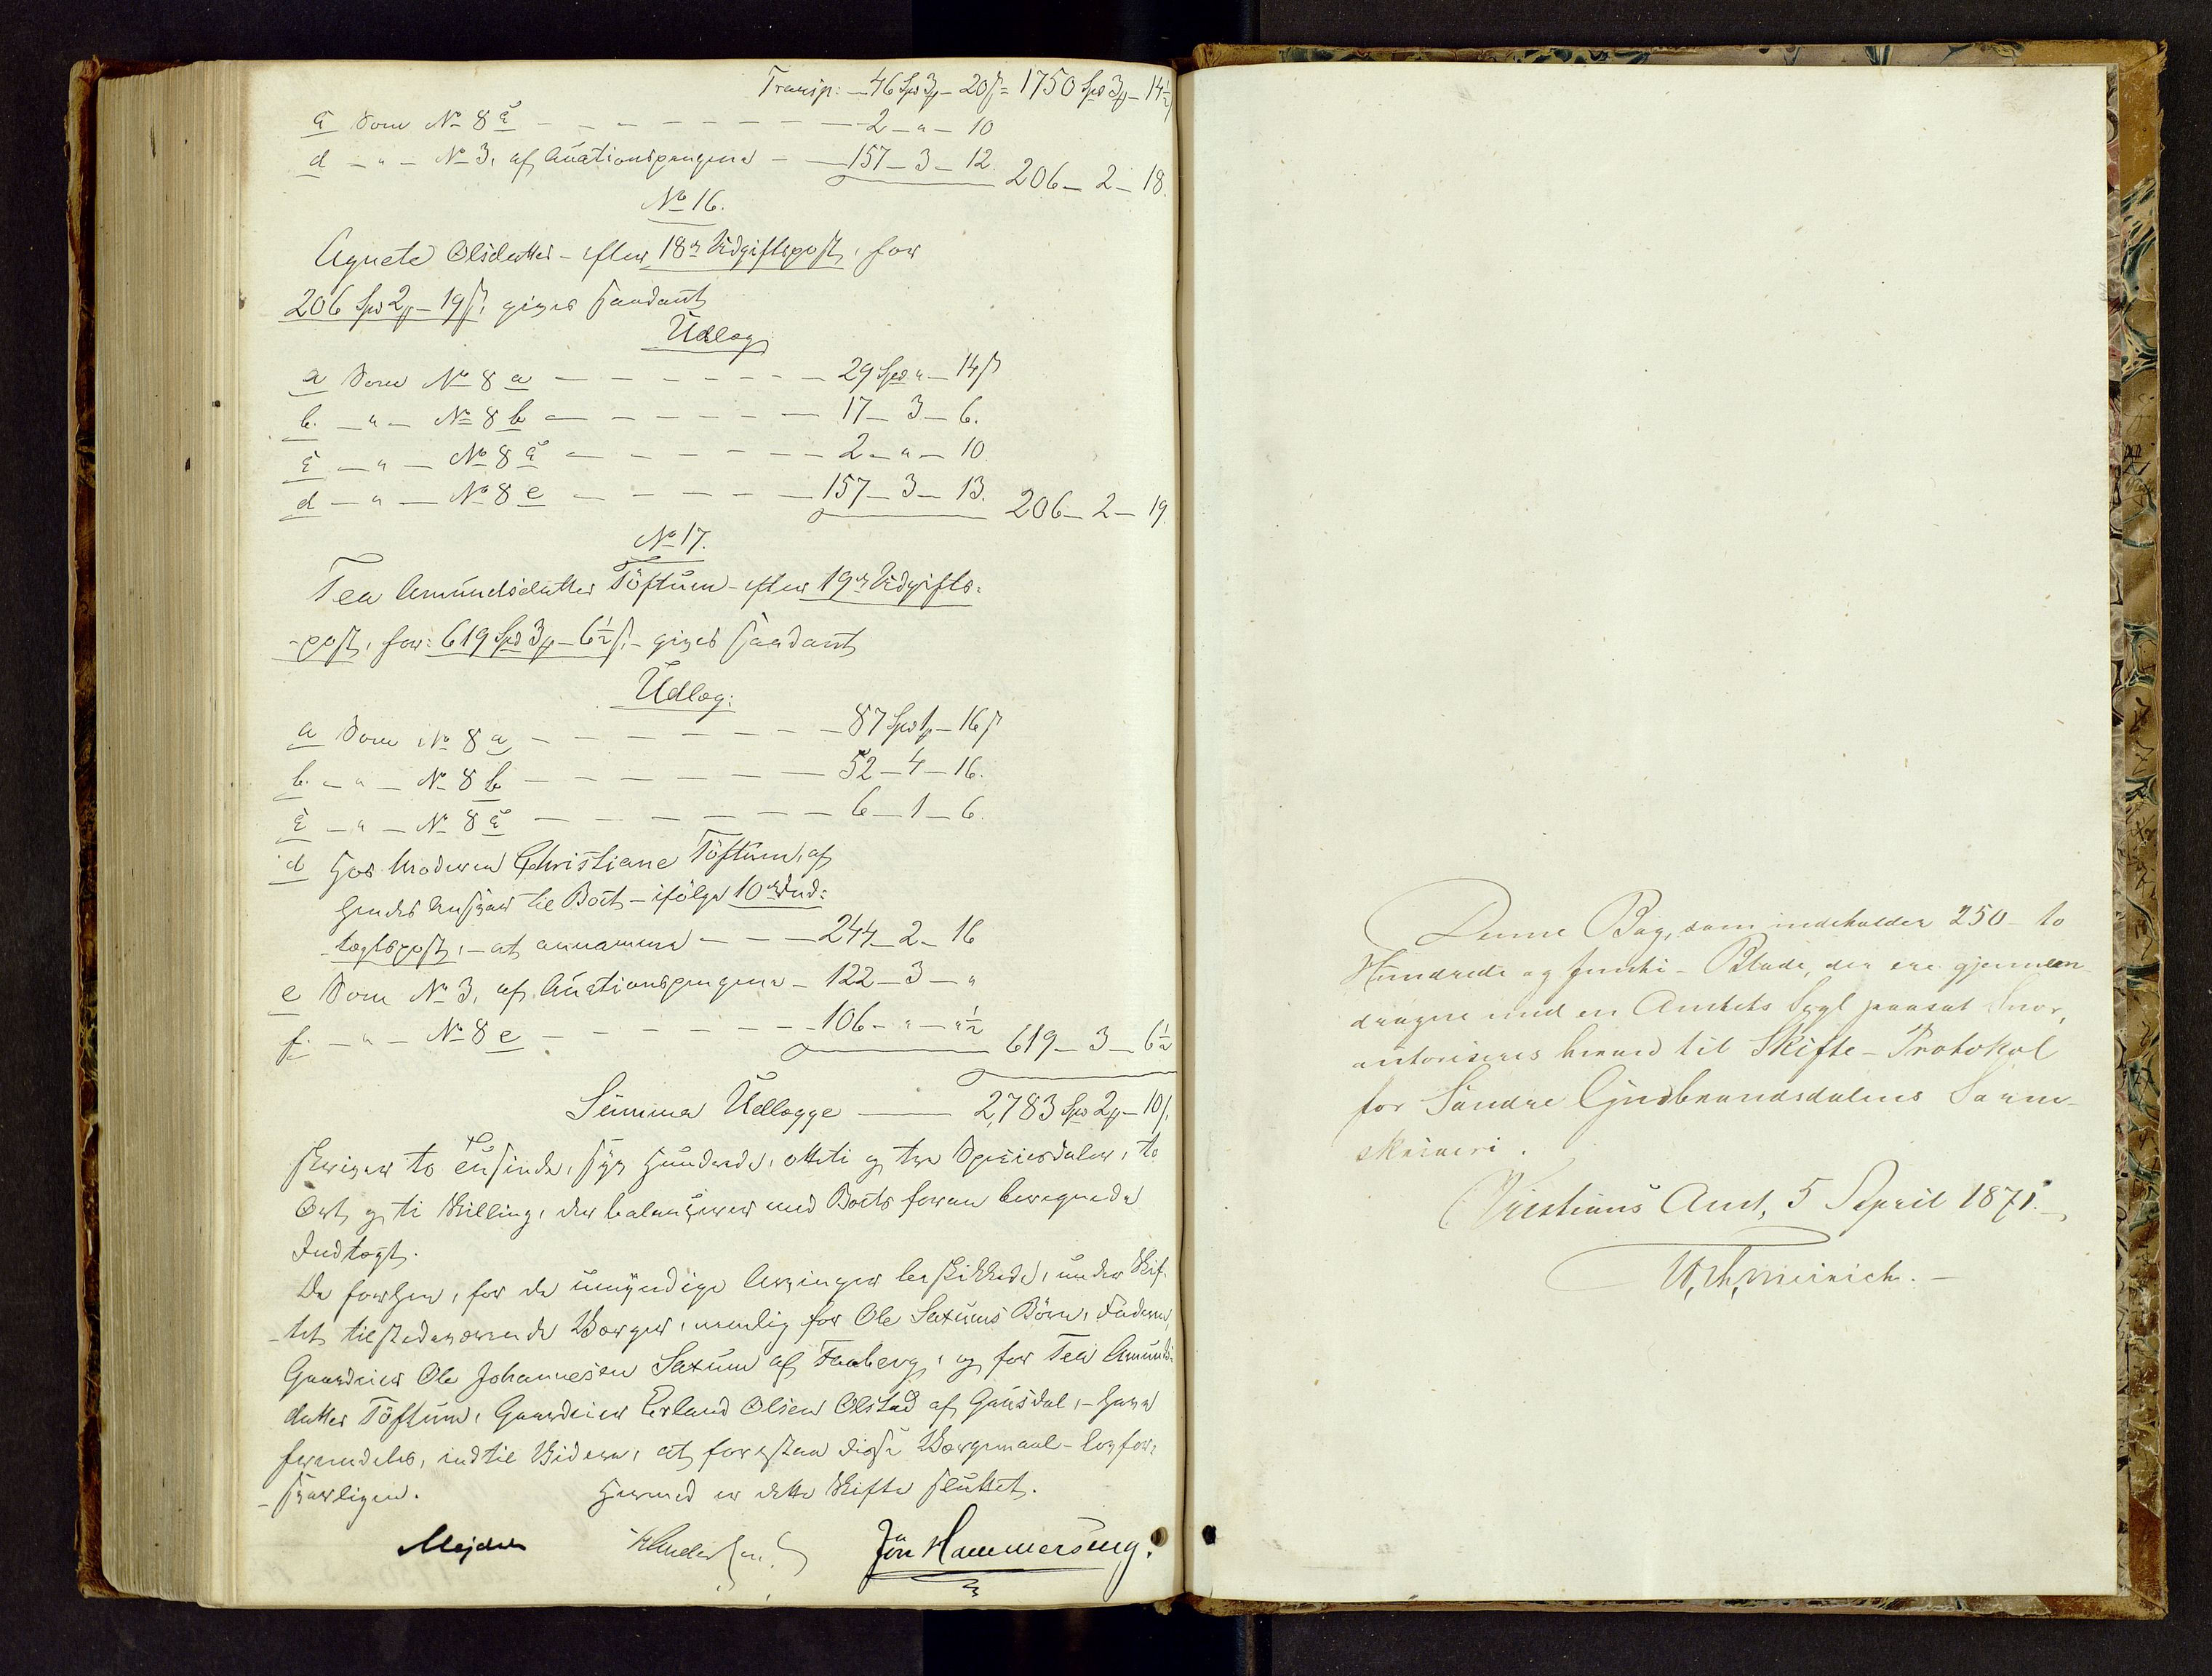 Transp: – 46 Spd 3 – 20 ſ = 1750 Spd 3 – 14½
c Som No 8 c – – – – – – – – 2 – " – 10
d – " – No 3, af Auctionspengene – – 157 – 3 – 12. 206 – 2 – 18.
No 16.
Agnete Olsdatter – efter 18de Udgiftspost, for
206 Spd 2 – 19 ſ, gives saadant
Udlæg
a Som No 8 a – – – – – – – 29 Spd " – 14 ſ
b. – " – No 8 b – – – – – – – 17 – 3 – 6.
c – " – No 8 c – – – – – – – 2 – " – 10.
d – " – No 8 e – – – – – – 157 – 3 – 13. 206 – 2 – 19.
No 17.
Tea Amundsdatter Töftum – efter 19de Udgifts-
-post, for: 619 Spd 3 – 6½ ſ. – gives saadant
Udlæg:
a Som No 8 a – – – – – – – – 87 Spd 1 – 16 ſ
b. – " – No 8 b – – – – – – – 52 – 4 – 16.
c – " – No 8 c – – – – – – – 6 – 1 – 6.
d Hos Moderen Christiane Töftum, af
hendes Ansvar til Boet – ifölge 10de Ind-
-tægtspost, – at annamme – – – 244 – 2 – 16
e Som No 3, af Auctionspengene – 122 – 3 – "
f. – " – No 8 e – – – – – – – 106 – " – "½ 619 – 3 – 6½
Summa Udlægge —— 2,783 Spd 2 – 10 ſ.
skriver to Tusinde, syv Hundrede, otteti og tre Speciesdaler, to
Ort og ti Skilling, der balancerer med Boets foran beregnede
Indtægt.
De forhen, for de umyndige Arvinger beskikkede, under Skif-
-tet tilstedeværende Værger, nemlig for Ole Saxums Börn, Faderen,
Gaardeier Ole Johannesen Saxum af Faaberg, og for Tea Amunds-
datter Töftum, Gaardeier Erland Olsen Olstad af Gausdal, – have
fremdeles, indtil Videre, at forestaa disse Værgemaal – lovfor-
-svarligen. Hermed er dette Skifte sluttet.
Mejdell Jön Hammerseng.
Denne Bog, som indeholder 250 – to
Hundrede og femti – Blade, der ere gjennem
dragne med en Amtets Segl paasat Snor,
autoriseres herved til Skifte – Protokol
for Söndre Gudbrandsdalens Soren-
skriveri.
Christians Amt, 5 April 1871. –